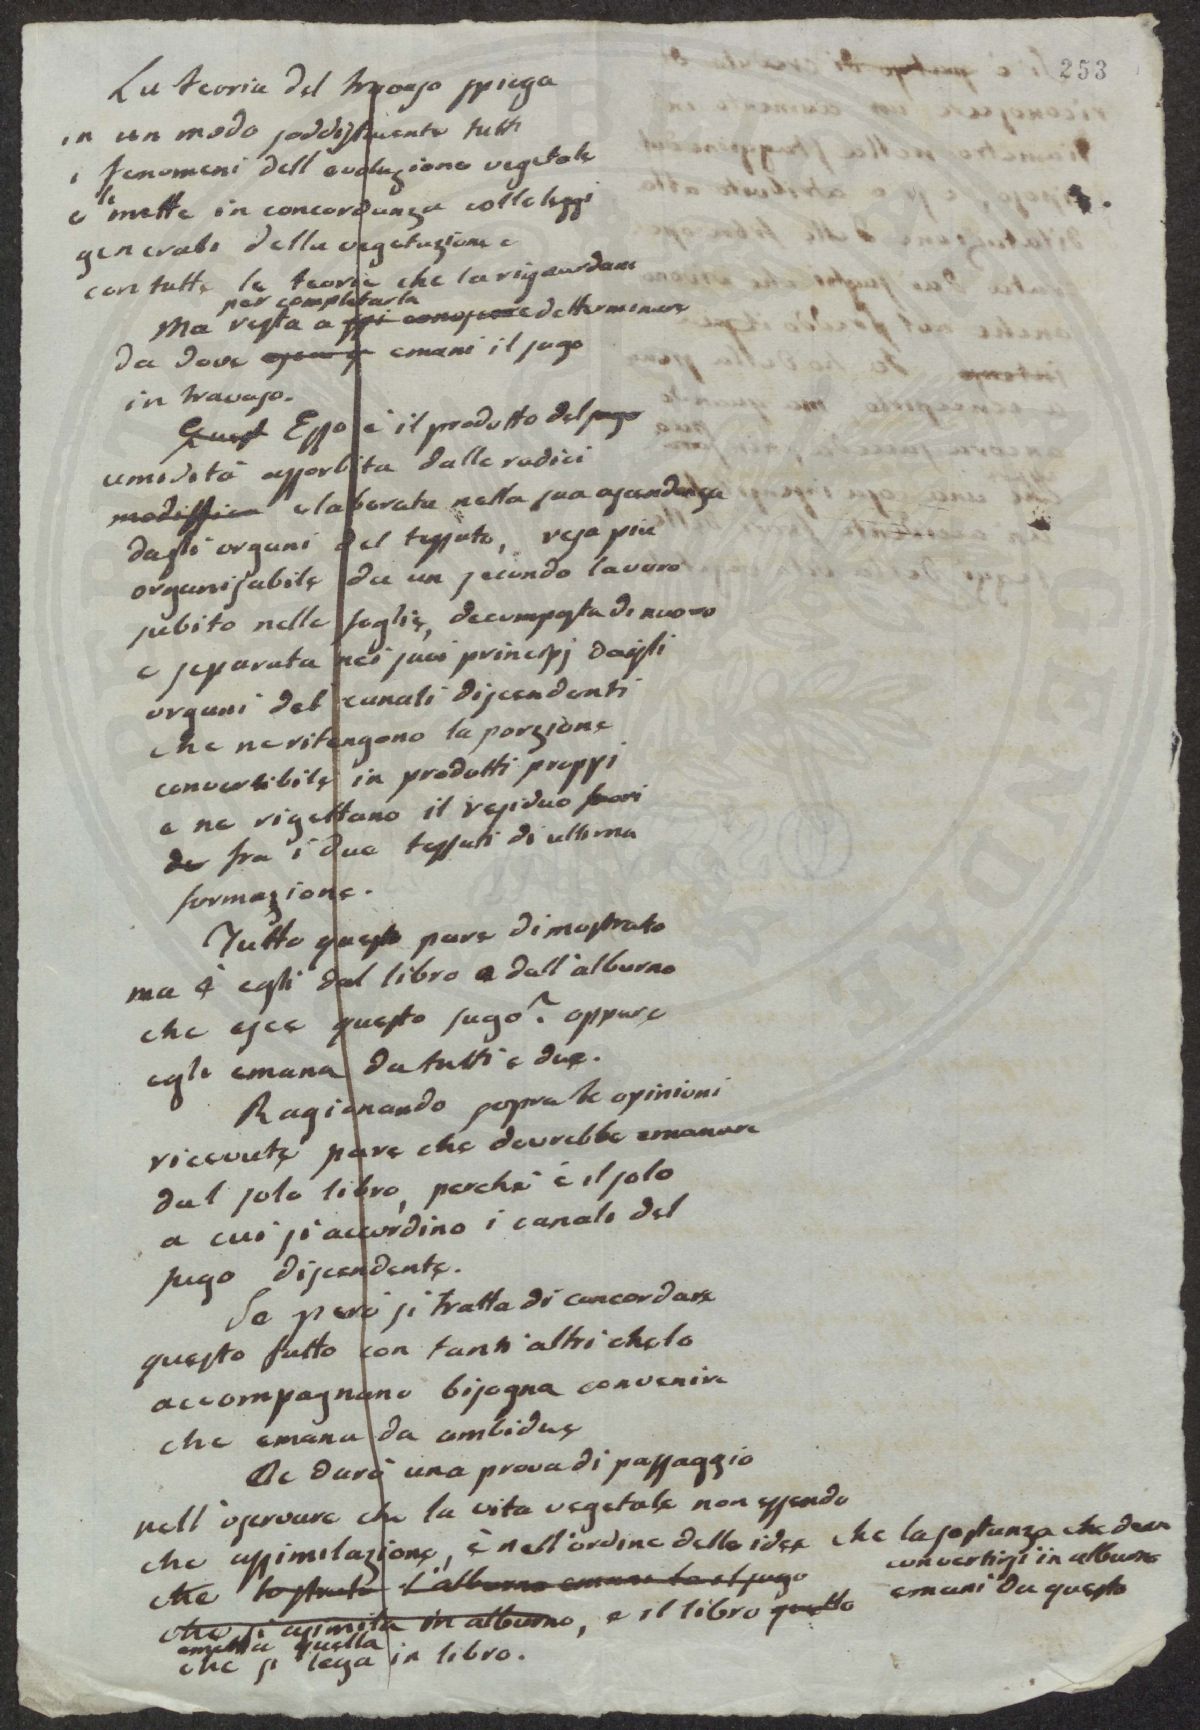 253
La teoria del travaso spiega
in un modo soddisfacente tutti
i fenomeni dell evoluzione vegetale
e li mette in concordanza colle leggi
generali della vegetazione e
con tutte le teorie che la riguardano
per completarla
Ma resta a determinare
da dove emani il sugo
in travaso.
Quest Esso è il prodotto del sugo
umidità assorbita dalle radici
modiffica elaborata nella sua ascendenza
dagli organi del tessuto, resa più
organisabile da un secondo lavoro
subito nelle foglie, decomposta di nuovo
e separata nei suoi principj dagli
organi dei canali discendenti
che ne ritengono la porzione
convertibile in prodotti proppi
e ne rigettano il residuo fuori
de fra i due tessuti di ultima
formazione.
Tutto questo pare dimostrato
ma è egli dal libro o dall'alburno
che esce questo sugo? oppure
egli emana da tutti e due.
Ragionando sopra le opinioni
ricevute pare che dovrebbe emanare
dal solo libro, perchè è il solo
a cui si accordino i canali del
sugo discendente.
Se però si tratta di concordare
questo fatto con tanti altri che lo
accompagnano bisogna convenire
che emana da ambidue
Ne darò una prova di passaggio
nell'osservare che la vita vegetale non essendo
che assimilazione, è nell'ordine delle idee che la sostanza che deve
convertirsi in alburno
che lo strato l'alburno emani da el sugo
emani da questo
che si asimila in alburno, e il libro
emetta quella
che si lega in libro.